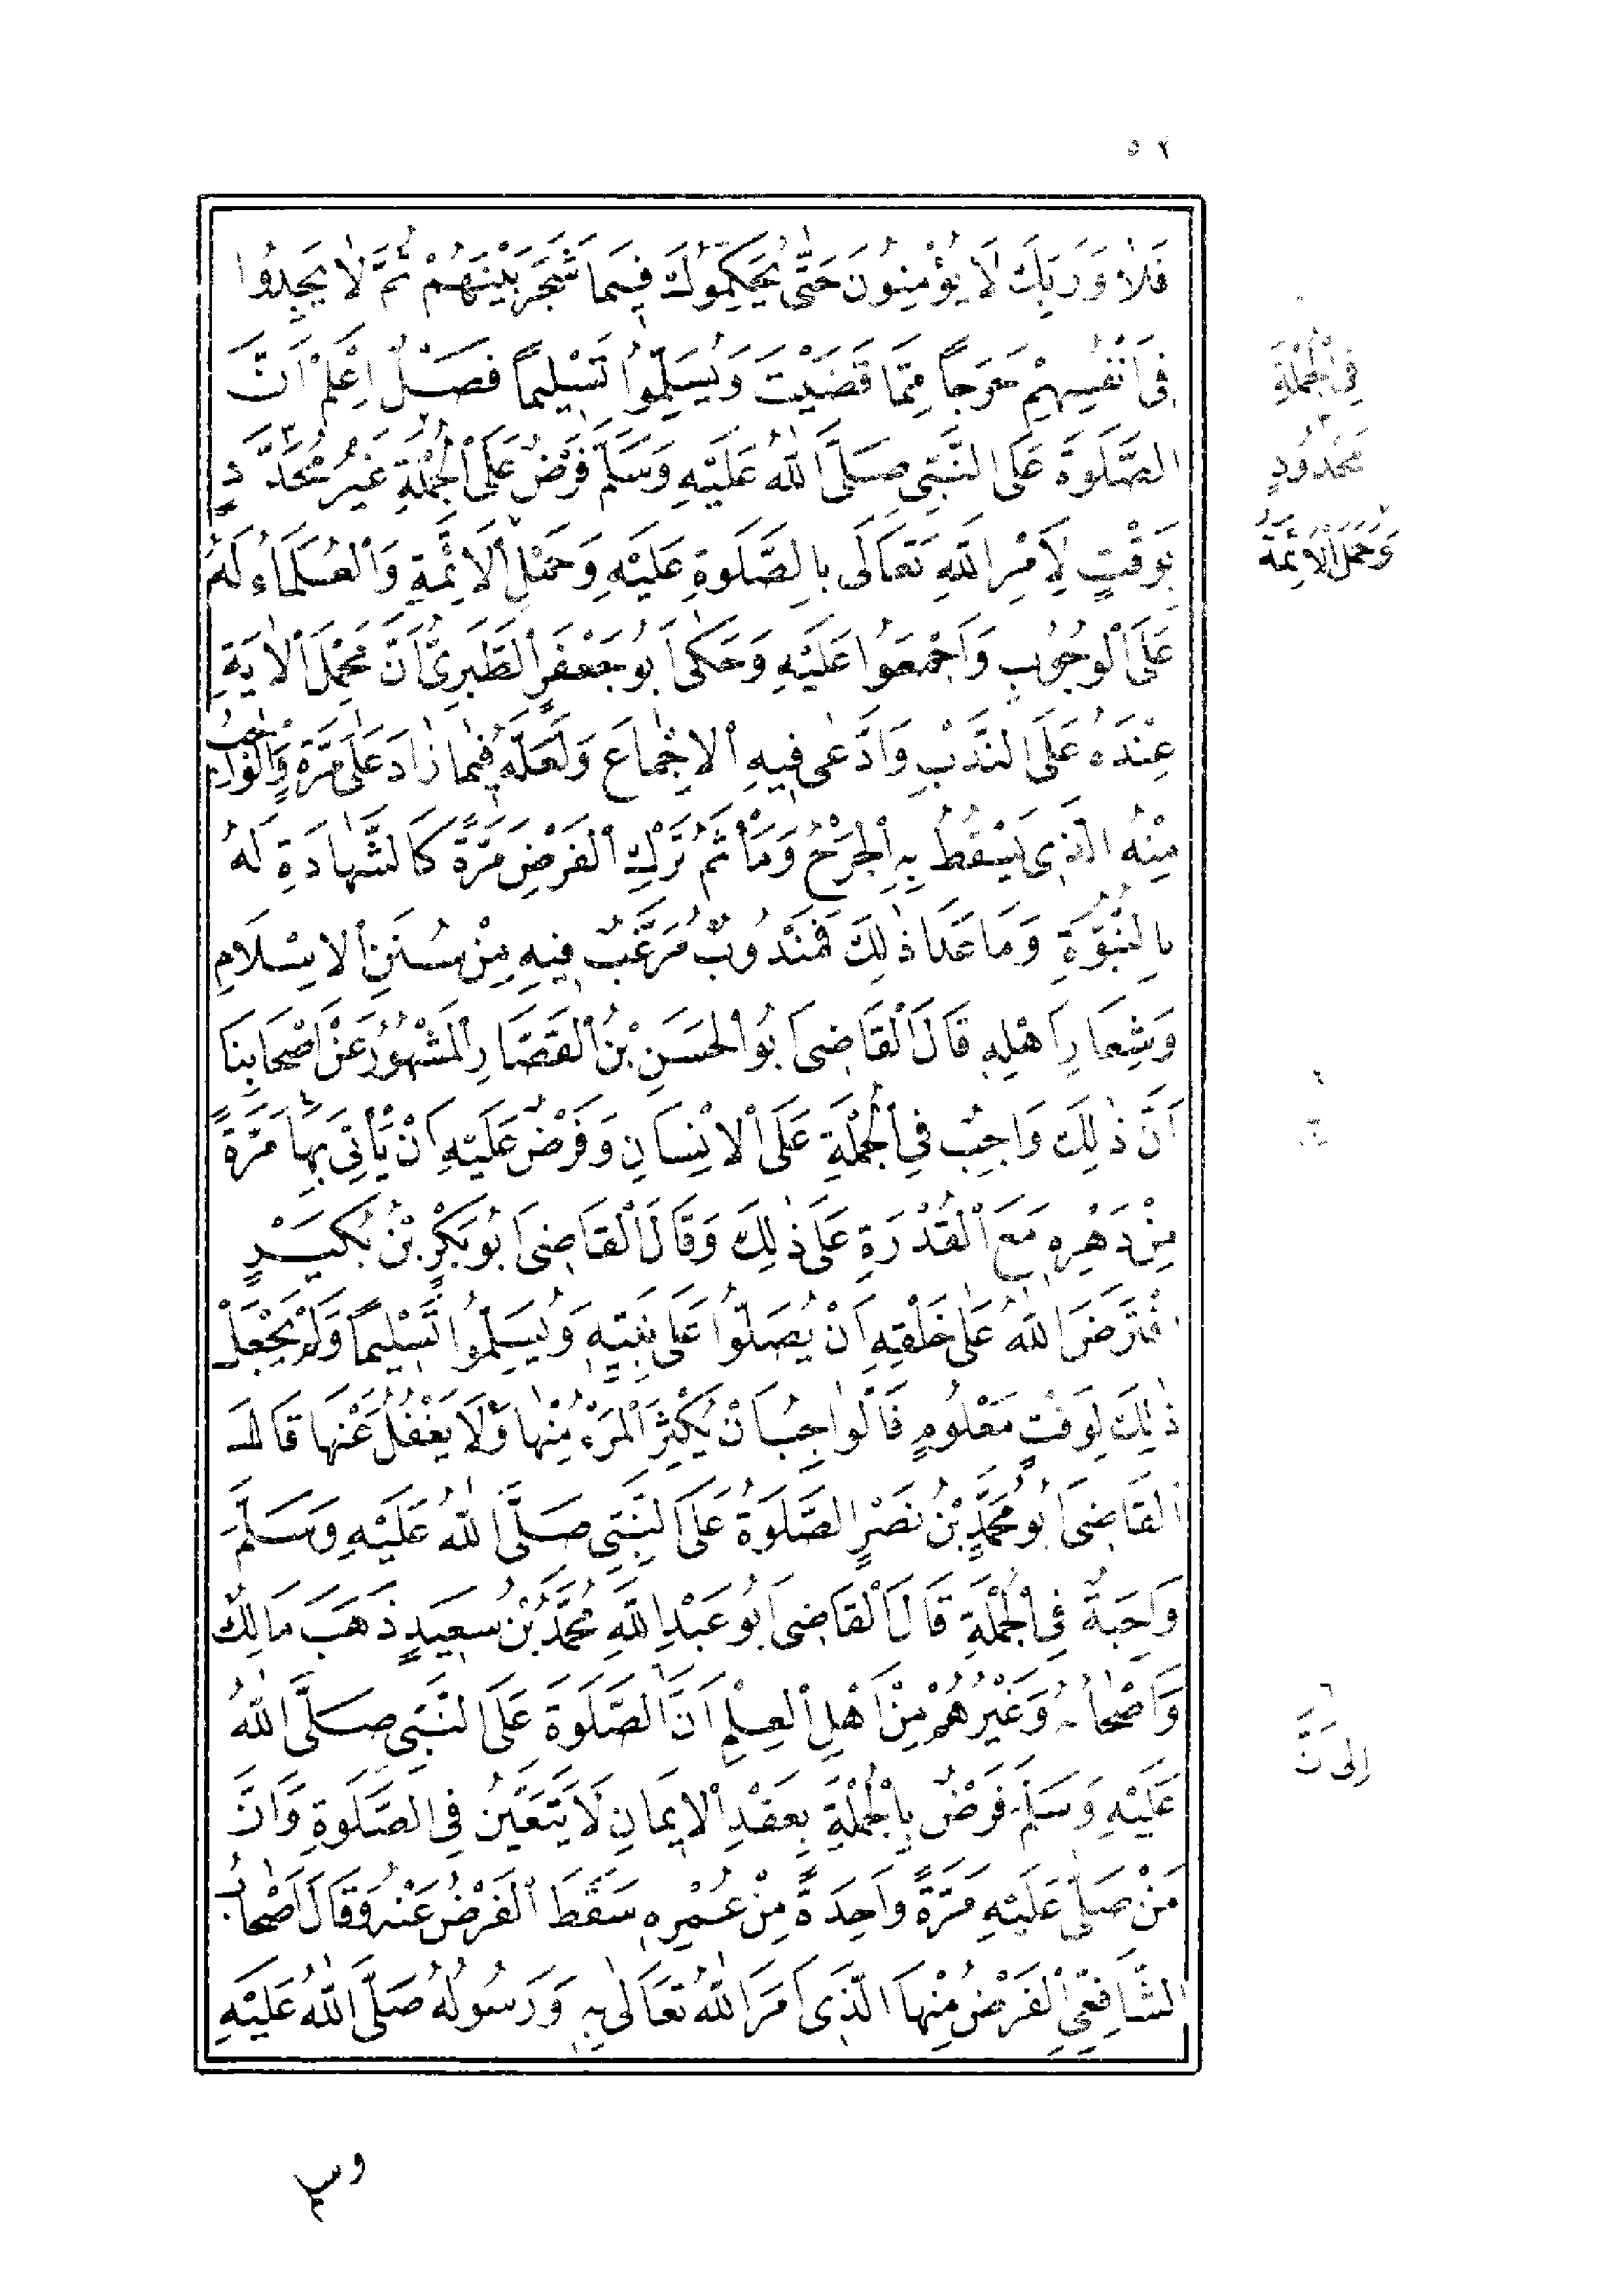 ٥٢
فَلَا وَرَبِّكَ لَا يُؤْمِنُونَ حَتّٰى يُحَكِّمُوكَ فِيمَا شَجَرَ بَيْنَهُمْ ثُمَّ لَا يَجِدُوا
فِى اَنْفُسِهِمْ حَرَجًا مِمَّا قَضَيْتَ وَيُسَلِّمُوا تَسْلِيمًا فَصْلٌ اِعْلَمْ اَنَّ
الصَّلَوةَ عَلَى النَّبِيِّ صَلَّى اللّٰهُ عَلَيْهِ وَسَلَّمَ فَرْضٌ عَلَى الْجُمْلَةِ غَيْرُ مُحَدَّدٍ
بِوَقْتٍ لِاَمْرِ اللّٰهِ تَعَالَى بِالصَّلَوةِ عَلَيْهِ وَحَمْلِ الْاَئِمَّةِ وَالْعُلَمَاءِ لَهُ
عَلَى الْوُجُوبِ وَاَجْمَعُوا عَلَيْهِ وَحَكٰى اَبُو جَعْفَرٍ الطَّبَرِىُّ اَنَّ مَحْمِلَ الْاٰيَةِ
عِنْدَهُ عَلَى النَّدْبِ وَادَّعٰى فِيهِ الْاِجْمَاعَ وَلَعَلَّهُ فِيمَا زَادَ عَلٰى مَرَّةٍ وَالْوَاجِبُ
مِنْهُ الَّذِى يَسْقُطُ بِهِ الْحَرَجُ وَمَأْثَمُ تَرْكِ الْفَرْضِ مَرَّةً كَالشَّهَادَةِ لَهُ
بِالنُّبُوَّةِ وَمَا عَدَا ذٰلِكَ فَمَنْدُوبٌ مُرَغَّبٌ فِيهِ مِنْ سُنَنِ الْاِسْلَامِ
وَشِعَارِ اَهْلِهِ قَالَ الْقَاضِى اَبُو الْحَسَنِ بْنُ الْقَصَّارِ الْمَشْهُورُ عَنْ اَصْحَابِنَا
اَنَّ ذٰلِكَ وَاجِبٌ فِى الْجُمْلَةِ عَلَى الْاِنْسَانِ وَفَرْضٌ عَلَيْهِ اَنْ يَأْتِىَ بِهَا مَرَّةً
مِنْ دَهْرِهِ مَعَ الْقُدْرَةِ عَلَى ذٰلِكَ وَقَالَ الْقَاضِى اَبُو بَكْرٍ بْنُ بُكَيْرٍ
افْتَرَضَ اللّٰهُ عَلٰى خَلْقِهِ اَنْ يُصَلُّوا عَلَى نَبِيِّهِ وَيُسَلِّمُوا تَسْلِيمًا وَلَمْ يَجْعَلْ
ذٰلِكَ لِوَقْتٍ مَعْلُومٍ فَالْوَاجِبُ اَنْ يُكْثِرَ الْمَرْءُ مِنْهَا وَلَا يَغْفُلُ عَنْهَا قَالَ
الْقَاضِى اَبُو مُحَمَّدٍ بْنُ نَصْرٍ الصَّلَوةُ عَلَى النَّبِيِّ صَلَّى اللّٰهُ عَلَيْهِ وَسَلَّمَ
وَاجِبَةٌ فِى الْجُمْلَةِ قَالَ الْقَاضِى اَبُو عَبْدِ اللّٰهِ مُحَمَّدُ بْنُ سَعِيدٍ ذَهَبَ مَالِكٌ
وَاَصْحَابُهُ وَغَيْرُهُمْ مِنْ اَهْلِ الْعِلْمِ اَنَّ الصَّلَوةَ عَلَى النَّبِيِّ صَلَّى اللّٰهُ
عَلَيْهِ وَسَلَّمَ فَرْضٌ بِالْجُمْلَةِ بِعَقْدِ الْاِيمَانِ لَا يَتَعَيَّنُ فِى الصَّلَوةِ وَاَنَّ
مَنْ صَلَّى عَلَيْهِ مَرَّةً وَاحِدَةً مِنْ عُمْرِهِ سَقَطَ الْفَرْضُ عَنْهُ وَقَالَ اَصْحَابُ
الشَّافِعِيِّ الْفَرْضُ مِنْهَا الَّذِى اَمَرَ اللّٰهُ تَعَالٰى بِهِ وَرَسُولُهُ صَلَّى اللّٰهُ عَلَيْهِ
فِى الْجُمْلَةِ
٣
مَحْدُودٍ
٢
وَحَمَلَ الْاَئِمَّةُ
٦
اِلَى اَنَّ
وسلم